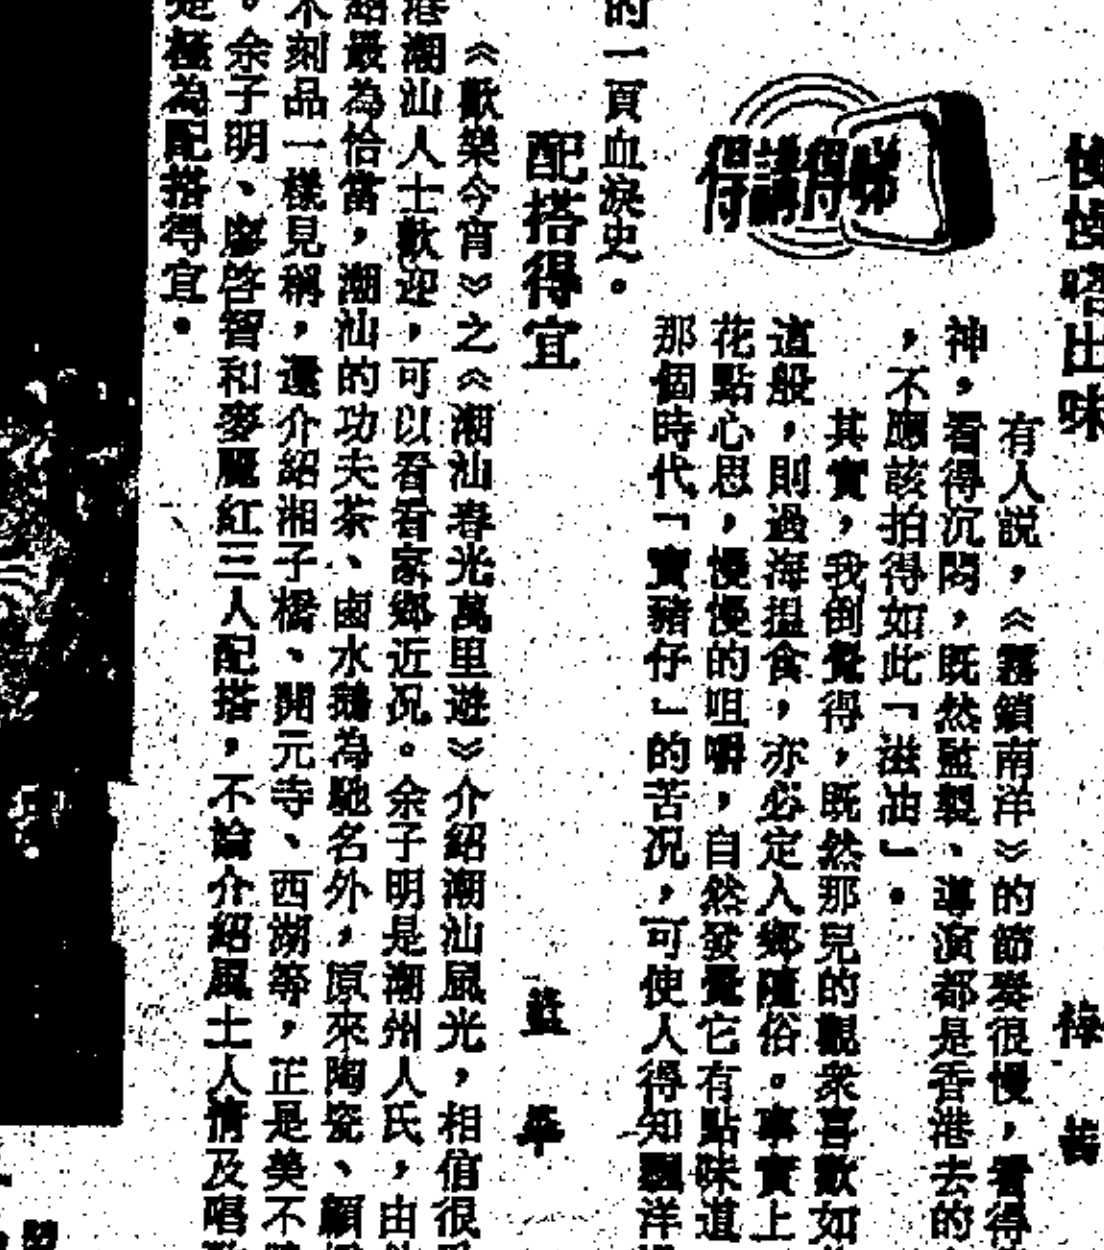 慢慢嗒出味
苦
睇得講得
有人説，《霧鎖南洋》的節奏很慢，看得
神，看得沉悶，既然監製、導演都是香港去的
，不應該拍得如此「滋油」。
其實，我倒覺得，既然那兒的觀衆喜歡如
這般，則過海搵食，亦必定入鄉隨俗。事實上
花點心思，慢慢的咀嚼，自然發覺它有點味道
那個時代「賣豬仔」的苦况，可使人得知飄洋
的一頁血淚史。
配搭得宜
《歡樂今宵》之《潮汕春光萬里遊》介紹潮汕風光，相信很
港潮汕人士歡迎，可以看看家鄉近况。余子明是潮州人氏，由
紹最為恰當，潮汕的功夫茶、鹵水鵝為馳名外，原來陶瓷、顧
木刻品一樣見稱，還介紹湘子橋、開元寺、西湖等，正是美不
。余子明、廖啓智和麥麗紅三人配搭，不論介紹風土人情及唱
是極為配搭得宜。